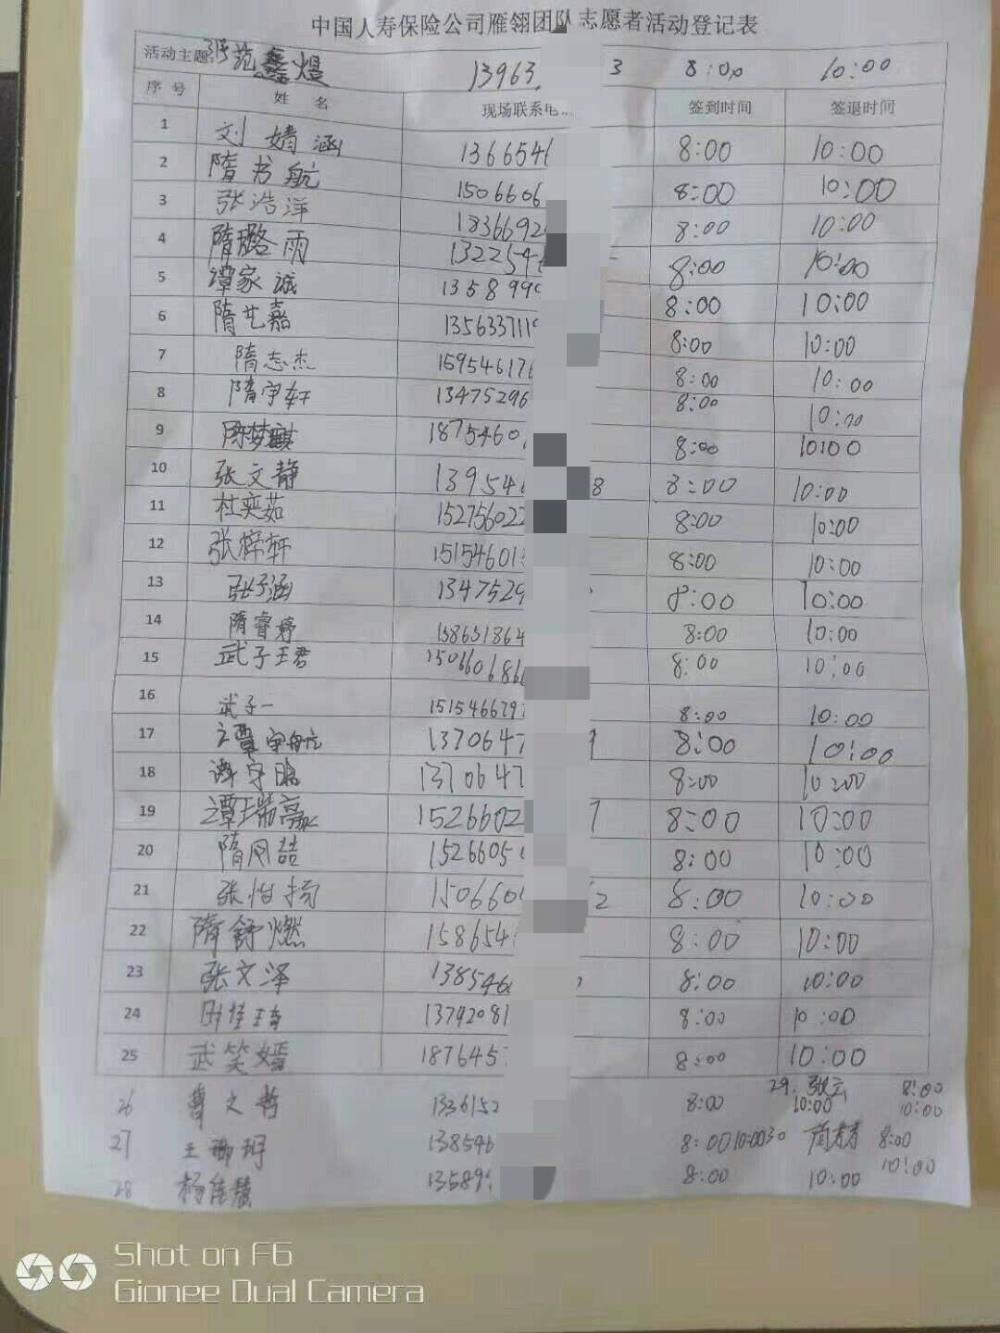 中国人寿保险公司雁翎团队志愿者活动登记表
活动主题: 张范鑫煜 13963 3 8:00 10:00
序号 姓名 现场联系电... 签到时间 签退时间
1 刘婧涵 1366546 8:00 10:00
2 隋书航 1506606 8:00 10:00
3 张浩洋 1836692 8:00 10:00
4 隋璐雨 132254 8:00 10:00
5 谭家诚 1358999 8:00 10:00
6 隋艺嘉 135633711 8:00 10:00
7 隋志杰 15954617 8:00 10:00
8 隋宇轩 13475296 8:00 10:00
9 1875460 8:00 10:00
10 张文静 139546 8 8:00 10:00
11 杜奕茹 152756022 8:00 10:00
12 张梓轩 15154601 8:00 10:00
13 张子涵 1347529 8:00 10:00
14 隋睿婷 158651864 8:00 10:00
15 武子王君 150660686 8:00 10:00
16 武子一 151546679 8:00 10:00
17 谭宇航 1370647 8:00 10:00
18 谭宇鹏 1370647 8:00 10:00
19 谭瑞赢 1526602 7 8:00 10:00
20 隋风喆 1526605 8:00 10:00
21 张怡扬 150660 2 8:00 10:00
22 隋舒燃 158654 8:00 10:00
23 张文泽 138546 8:00 10:00
24 13792081 8:00 10:00
25 武笑嫣 187645 8:00 10:00
26 曹文哲 1336152 8:00 10:00 29. 张云 8:00 10:00
27 王珊珂 138546 8:00 10:00 30 8:00 10:00
28 杨佳慧 13589 8:00 10:00
Shot on F6
Gionee Dual Camera